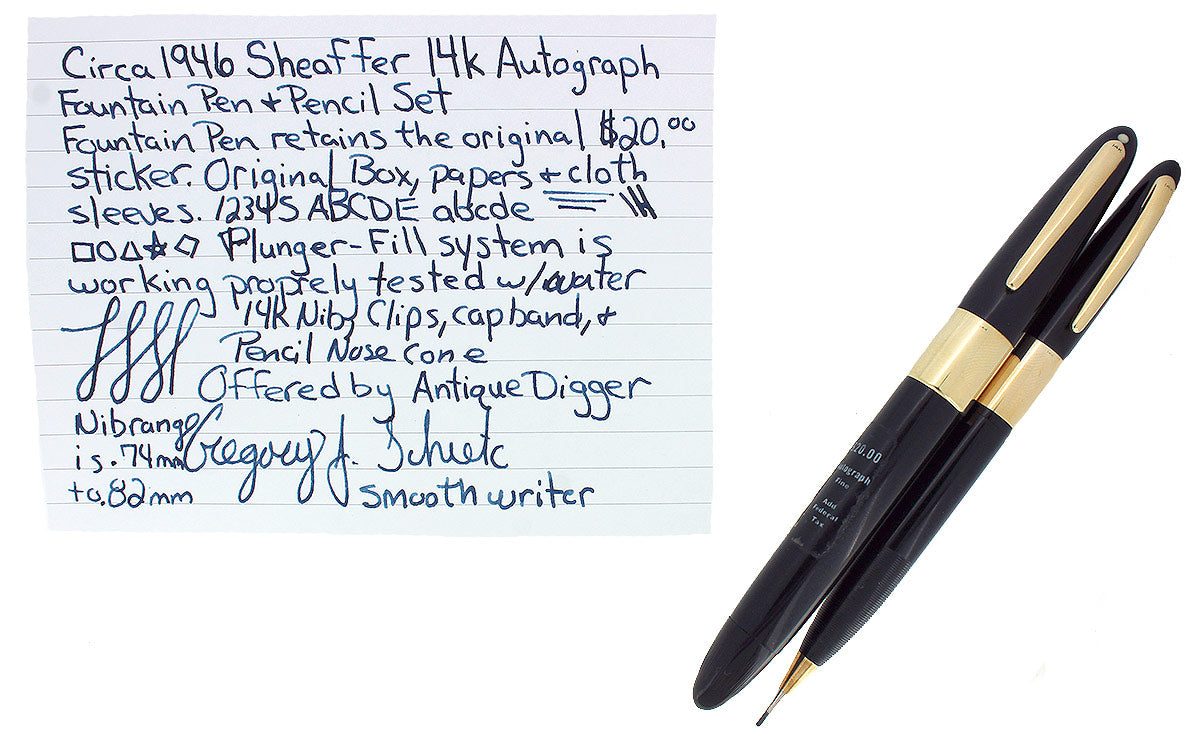 Circa 1946 Sheaffer 14k Autograph
Fountain Pen + Pencil Set
Fountain Pen retains the original $20.00
sticker. Original Box, papers + cloth
sleeves. 12345 ABCDE abcde
Plunger-Fill system is
working proprely tested w/water
14K Nib, Clips, cap band, +
Pencil Nose cone
Offered by Antique Digger
Nib range
is .74mm
to .82mm
Gregory J.
smooth writer
$20.00
Autograph
Fine
Add
Federal
Tax